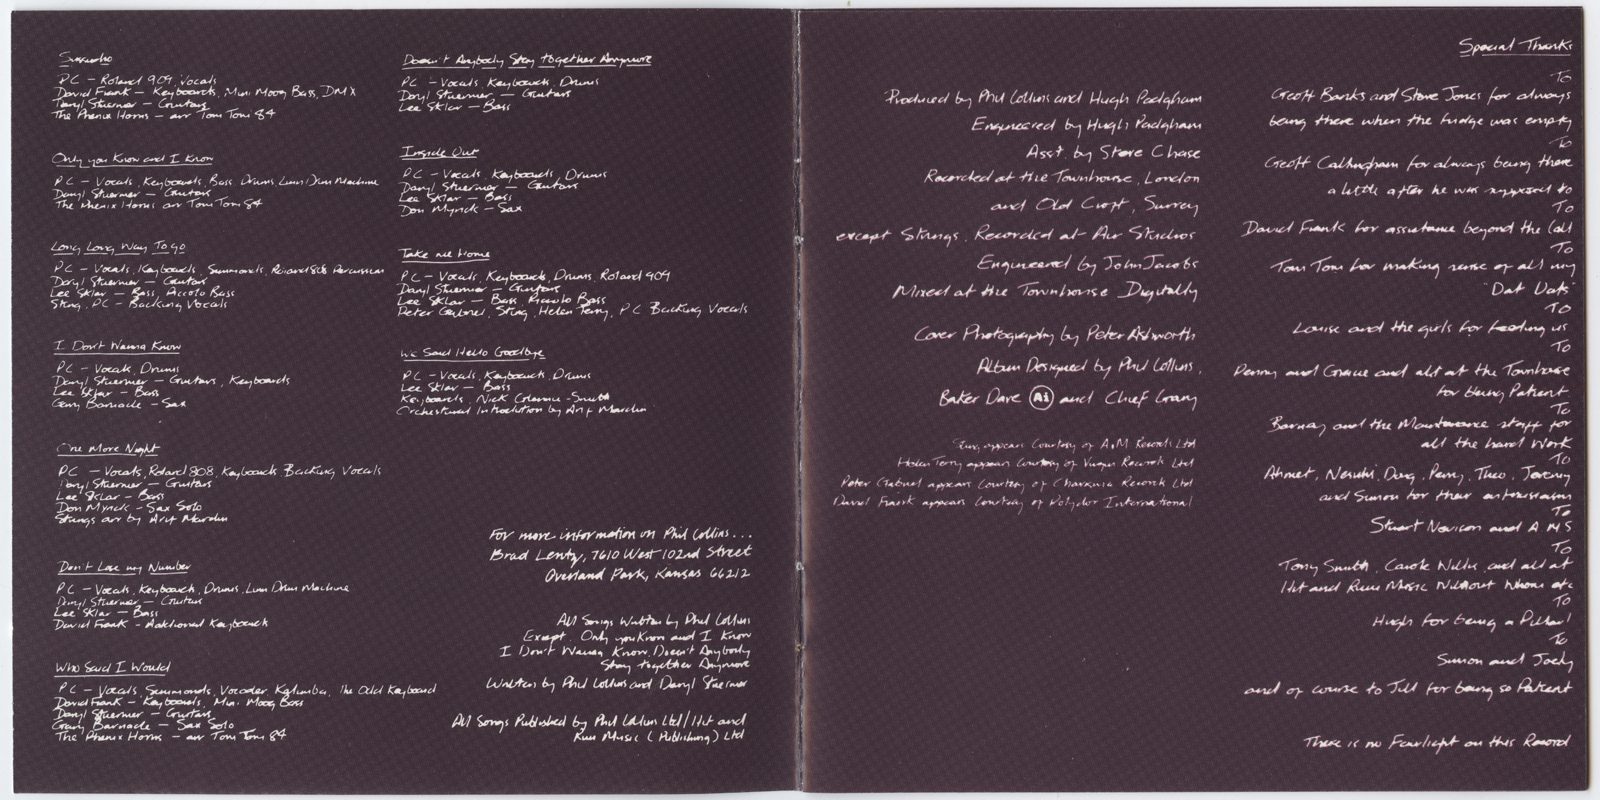 Sussudio
PC - Roland 909, Vocals
David Frank - Keyboards, Mini Moog Bass, DMX
Daryl Stuermer - Guitars
The Phenix Horns - arr Tom Tom 84
Only you Know and I Know
PC - Vocals, Keyboards, Bass, Drums, Linn Drum Machine
Daryl Stuermer - Guitars
The Phenix Horns arr Tom Tom 84
Long Long Way To go
PC - Vocals, Keyboards, Simmonds, Roland 808 Percussion
Daryl Stuermer - Guitars
Lee Sklar - Bass, Piccolo Bass
Sting, PC - Backing Vocals
I Don't Wanna Know
PC - Vocals, Drums
Daryl Stuermer - Guitars, Keyboards
Lee Sklar - Bass
Gary Barnacle - Sax
One More Night
PC - Vocals, Roland 808, Keyboards Backing Vocals
Daryl Stuermer - Guitars
Lee Sklar - Bass
Don Myrick - Sax Solo
Strings arr by Arif Mardin
Don't Lose my Number
PC - Vocals, Keyboards, Drums, Linn Drum Machine
Daryl Stuermer - Guitars
Lee Sklar - Bass
David Frank - Additional Keyboards
Who Said I Would
PC - Vocals, Simmonds, Vocoder, Kalimba, the Odd Keyboard
David Frank - Keyboards, Mini Moog Bass
Daryl Stuermer - Guitars
Gary Barnacle - Sax Solo
The Phenix Horns - arr Tom Tom 84
Doesn't Anybody Stay together Anymore
PC - Vocals, Keyboards, Drums
Daryl Stuermer - Guitars
Lee Sklar - Bass
Inside Out
PC - Vocals, Keyboards, Drums
Daryl Stuermer - Guitars
Lee Sklar - Bass
Don Myrick - Sax
Take me Home
PC - Vocals, Keyboards, Drums, Roland 909
Daryl Stuermer - Guitars
Lee Sklar - Bass, Piccolo Bass
Peter Gabriel, Sting, Helen Terry, PC Backing Vocals
We Said Hello Goodbye
PC - Vocals, Keyboards, Drums
Lee Sklar - Bass
Keyboards, Nick Glennie-Smith
Orchestral Introduction by Arif Mardin
For more information on Phil Collins...
Brad Lentz, 7610 West 102nd Street
Overland Park, Kansas 66212
All Songs Written by Phil Collins
Except, Only you Know and I Know
I Don't Wanna Know, Doesn't Anybody
Stay together Anymore
Written by Phil Collins and Daryl Stuermer
All Songs Published by Phil Collins Ltd/Hit and
Run Music (Publishing) Ltd
Produced by Phil Collins and Hugh Padgham
Engineered by Hugh Padgham
Asst. by Steve Chase
Recorded at the Townhouse, London
and Old Croft, Surrey
except Strings, Recorded at Air Studios
Engineered by John Jacobs
Mixed at the Townhouse Digitally
Cover Photography by Peter Ashworth
Album Designed by Phil Collins,
Baker Dave Ai and Chief Grany
Sting appears Courtesy of A+M Records Ltd
Helen Terry appears Courtesy of Virgin Records Ltd
Peter Gabriel appears Courtesy of Charisma Records Ltd
David Frank appears Courtesy of Polydor International
Special Thanks
To
Geoff Banks and Steve Jones for always
being there when the fridge was empty
To
Geoff Callingham for always being there
a little after he was supposed to
To
David Frank for assistance beyond the Call
To
Tom Tom for making sense of all my
"Dat Dats"
To
Louise and the girls for feeding us
To
Penny and Gracie and all at the Townhouse
for being Patient
To
Barney and the Maintenance staff for
all the hard Work
To
Ahmet, Nesuhi, Doug, Perry, Theo, Jeremy
and Simon for their enthusiasm
To
Stuart Newison and AMS
To
Tony Smith, Carole Willis, and all at
Hit and Run Music Without whom etc
To
Hugh for being a Pillar!
To
Simon and Joely
and of course to Jill for being so Patient
There is no Fairlight on this Record